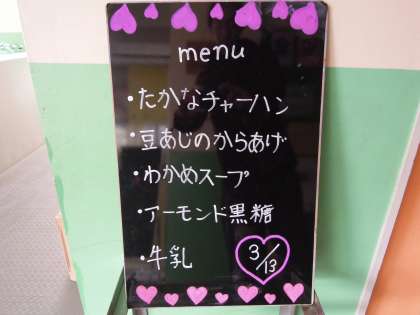 menu
・たかなチャーハン
・豆あじのからあげ
・わかめスープ
・アーモンド黒糖
・牛乳
3/13